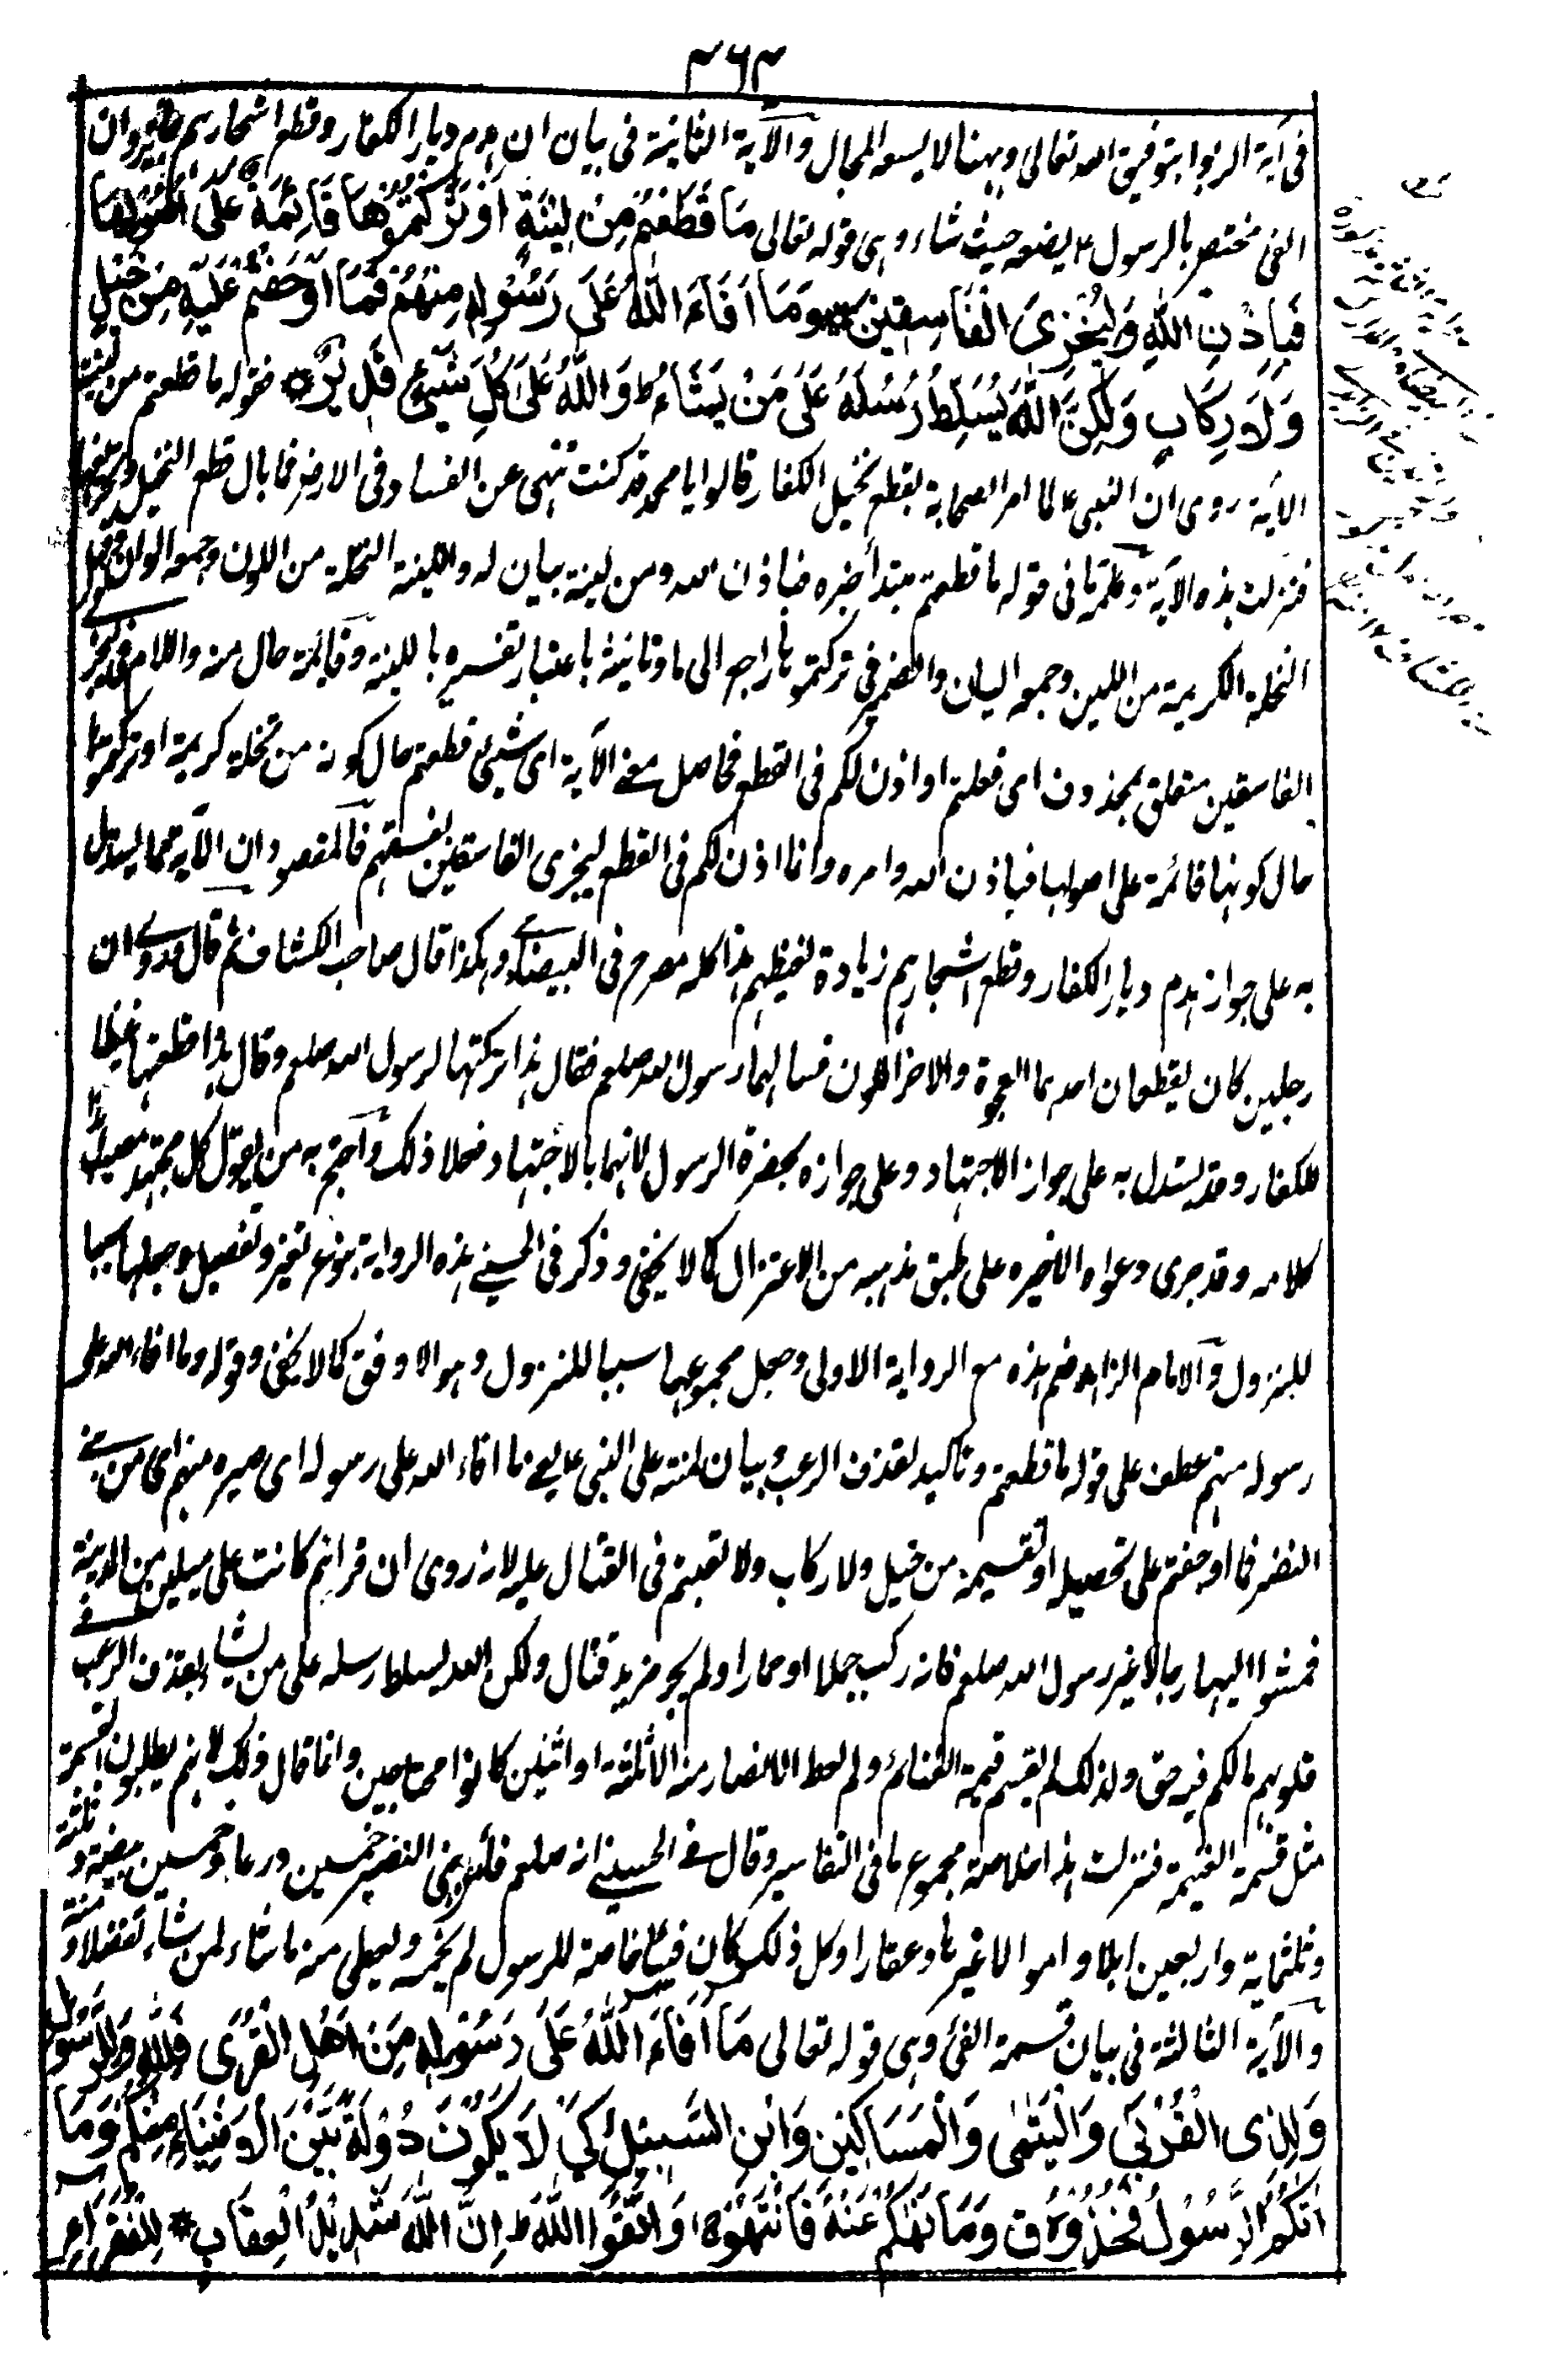 ٤٦٣
في آية الربوا بتوفيق الله تعالى وههنا لا يسعه المجال والآية الثانية في بيان ان هدم ديار الكفار وقطع اشجارهم جائز وان
الفئ مختص بالرسول ع يضعه حيث شاء وهي قوله تعالى مَا قَطَعْتُمْ مِنْ لِينَةٍ اَوْ تَرَكْتُمُوْهَا قَائِمَةً عَلَى اُصُولِهَا
فَبِاِذْنِ اللهِ وَلِيُخْزِىَ الْفَاسِقِيْنَ * وَمَا اَفَاءَ اللهُ عَلَى رَسُوْلِهِ مِنْهُمْ فَمَا اَوْجَفْتُمْ عَلَيْهِ مِنْ خَيْلٍ
وَلَا رِكَابٍ وَلَكِنَّ اللهَ يُسَلِّطُ رُسُلَهُ عَلَى مَنْ يَشَاءُ ط وَاللهُ عَلَى كُلِّ شَيْئٍ قَدِيْرٌ * فقوله ما قطعتم من لينة
الآية روى ان النبي ع لما امر الصحابة بقطع نخيل الكفار قالوا يا محمد قد كنت تنهى عن الفساد في الارض فما بال قطع النخيل وتحريقها
فنزلت هذه الآية وكلمة ما في قوله ما قطعتم مبتدأ خبره فباذن الله ومن لينة بيان له واللينة النخلة من اللون وجمعه الوان وقيل
النخلة الكريمة من اللين وجمعه اليان والضمير في تركتموها راجع الى ما وتانيثه باعتبار تفسيره باللينة وقائمة حال منه واللام في ليخزي
الفاسقين متعلق بمحذوف اى فعلتم او اذن لكم في القطع فحاصل معنى الآية اى شيئ قطعتم حال كونه من نخلة كريمة او تركتموها
حال كونها قائمة على اصولها فباذن الله وامره وانما اذن لكم في القطع ليجزى الفاسقين بفسقهم فالمقصود ان الآية مما يستدل
به على جواز هدم ديار الكفار وقطع اشجارهم زيادة لغيظهم هذا كله مصرح في البيضاوي وهكذا قال صاحب الكشاف ثم قال وروى ان
رجلين كان يقطعان احدهما العجوة والاخر اللون فسالهما رسول الله صلعم فقال هذا تركتها لرسول الله صلعم وقال هذا قطعتها غيظا
للكفار وقد يستدل به على جواز الاجتهاد وعلى جوازه بحضرة الرسول لانهما بالاجتهاد فعلا ذلك واحتج به من يقول كل مجتهد مصيب
كلامه وقد جرى دعواه الاخيره على طبق مذهبه من الاعتزال كما لا يخفى وذكر في الحسيني هذه الرواية بنوع تغير وتفصيل وجعلها سببا
للنزول والامام الزاهد ضم هذه مع الرواية الاولى وجعل مجموعها سببا للنزول وهو الاوفق كما لا يخفى وقوله وما افاء الله على
رسوله منهم عطف على قوله ما قطعتم وتاكيد لقذف الرعب وبيان لمنته على النبي ع يعني ما افاء الله على رسوله اى صيره منهم اى من بني
النضير فما اوجفتم على تحصيله او تقسيمه من خيل ولا ركاب ولا تعبتم في القتال عليه لانه روى ان قراهم كانت على ميلين من المدينة
فمشوا اليها رجالا غير رسول الله صلعم فانه ركب جملا او حمارا ولم يجر مزيد قتال ولكن الله يسلط رسله على من يشاء بقذف الرعب في
قلوبهم فما لكم فيه حق ولذلك لم يقسم قسمة الغنائم ولم يعط الانصار منه الا ثلثة او اثنين كانوا محتاجين وانما قال ذلك لانهم يطلبون القسمة
مثل قسمة الغنيمة فنزلت هذا خلاصة مجموع ما في التفاسير وقال في الحسيني انه صلعم بني النضير خمسين درعا وخمسين بيضة وثلثة
وثلثماية واربعين ابلا واموالا غيرها وعقارا وكل ذلك كان فيئا خاصة للرسول لم يخمسه ويعطى منه ما شاء لمن شاء تفضلا ومنة
والآية الثالثة في بيان قسمة الفئ وهى قوله تعالى مَا اَفَاءَ اللهُ عَلَى رَسُوْلِهِ مِنْ اَهْلِ الْقُرَى فَلِلّٰهِ وَلِلرَّسُوْلِ
وَلِذِى الْقُرْبَى وَالْيَتٰمٰى وَالْمَسَاكِيْنِ وَابْنِ السَّبِيْلِ كَيْ لَا يَكُوْنَ دُوْلَةً بَيْنَ الْاَغْنِيَاءِ مِنْكُمْ وَمَا
اٰتٰكُمُ الرَّسُوْلُ فَخُذُوْهُ ق وَمَا نَهٰكُمْ عَنْهُ فَانْتَهُوْا وَاتَّقُوا اللهَ ط اِنَّ اللهَ شَدِيْدُ الْعِقَابِ * لِلْفُقَرَاءِ